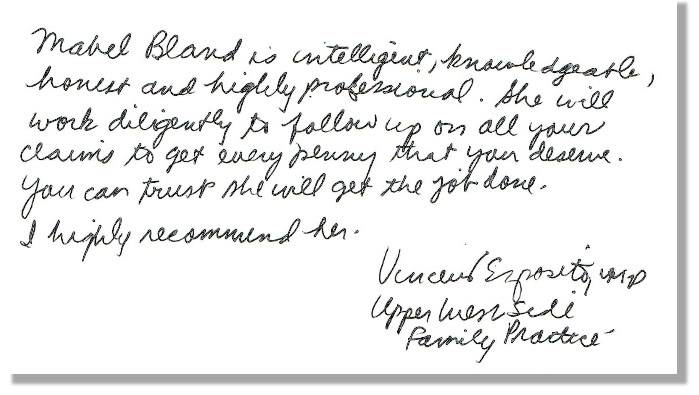 Mabel Bland is intelligent, knowledgeable,
honest and highly professional. She will
work diligently to follow up on all your
claims to get every penny that you deserve.
You can trust she will get the job done.
I highly recommend her.
Vincent Esposito, MD
Upper West Side
Family Practice